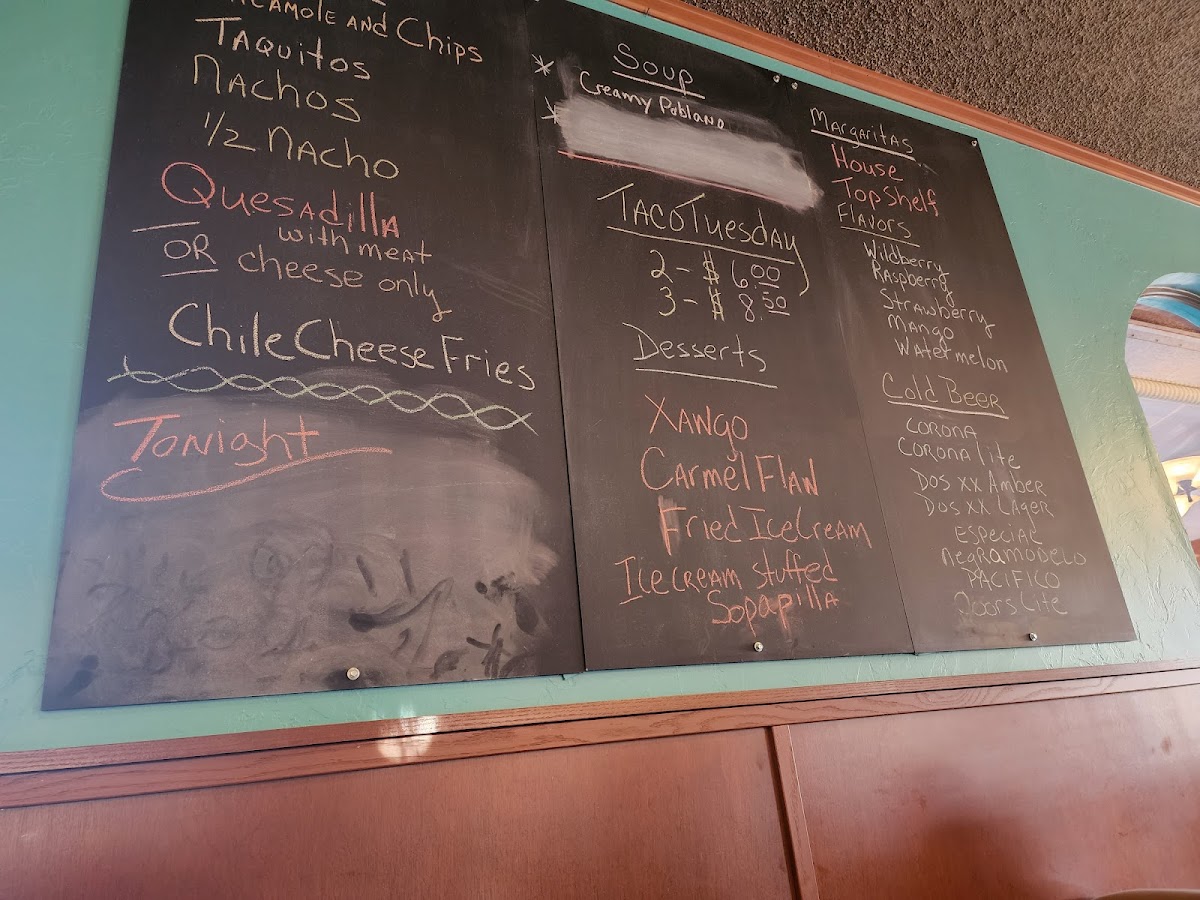 and Chips
Taquitos
Nachos
1/2 Nacho
Quesadilla
with meat
OR cheese only
Chile Cheese Fries
Tonight
Soup
Creamy Poblano
Taco Tuesday
2 - $6.00
3 - $8.50
Desserts
Xango
Carmel Flan
Fried IceCream
Icecream stuffed
Sopapilla
Margaritas
House
Top Shelf
Flavors
Wildberry
Raspberry
Strawberry
Mango
Watermelon
Cold Beer
Corona
Corona lite
Dos XX Amber
Dos XX Lager
Especial
Negra Modelo
Pacifico
Coors Lite